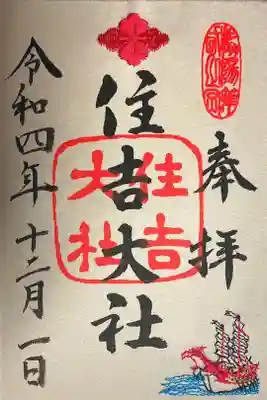 奉拝
住吉大社
住吉
大社
令和四年十二月一日